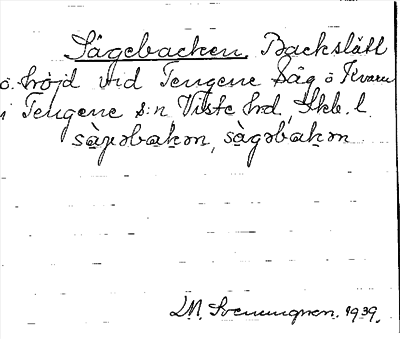 Sågebacken, Backslätt
o. höjd vid Tengene Såg o Kvarn
i Tengene s:n Viste hd, Skb. l.
sàɡəbakən, sàgəbakən
LM. Svenungsson. 1939.